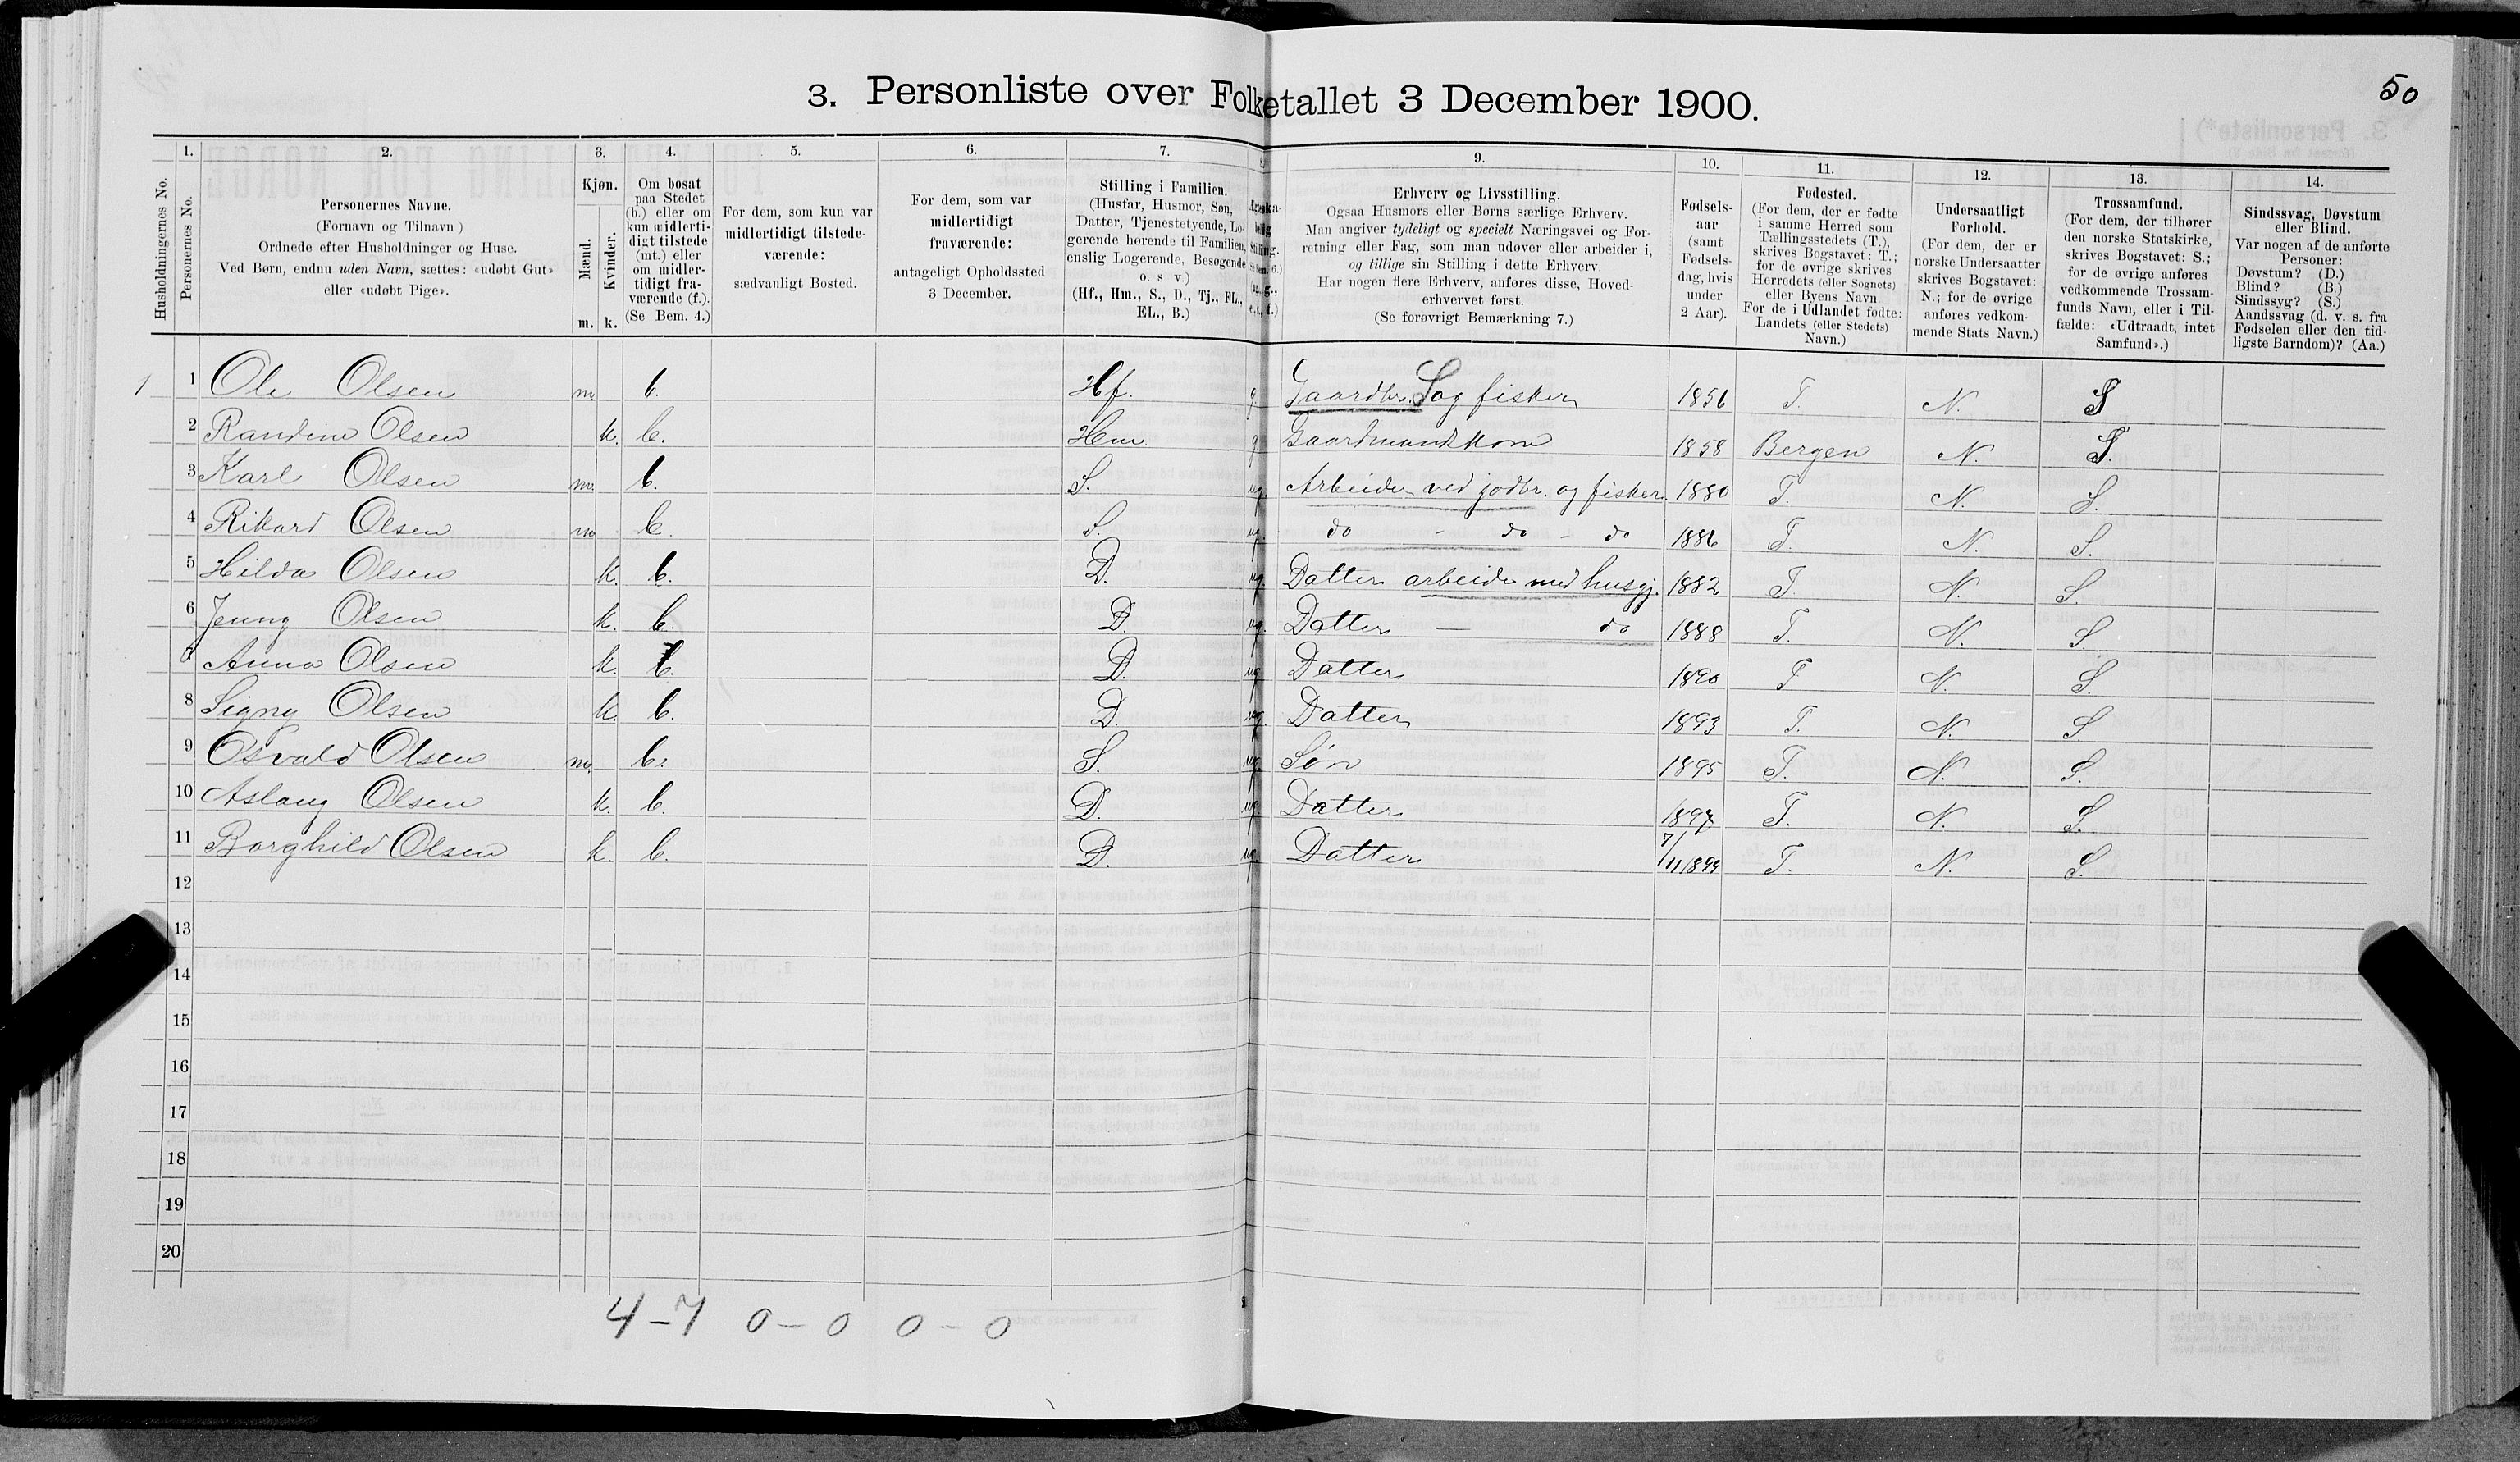 50
3. Personliste over Folketallet 3 December 1900.
1. 2. 3. 4. 5. 6. 7. 9. 10. 11. 12. 13. 14.
Husholdningernes No.
Personernes No.
Personernes Navne.
(Fornavn og Tilnavn)
Ordnede efter Husholdninger og Huse.
Ved Børn, endnu uden Navn, sættes: «udøbt Gut»
eller «udøbt Pige».
Kjøn.
Mænd.
Kvinder.
m. k.
Om bosat
paa Stedet
(b.) eller om
kun midlerti-
digt tilstede
(mt.) eller
om midler-
tidigt fra-
værende (f.).
(Se Bem. 4.)
For dem, som kun var
midlertidigt tilstede-
værende:
sædvanligt Bosted.
For dem, som var
midlertidigt
fraværende:
antageligt Opholdssted
3 December.
Stilling i Familien.
(Husfar, Husmor, Søn,
Datter, Tjenestetyende, Lo-
gerende hørende til Familien,
enslig Logerende, Besøgende
o. s v.)
(Hf., Hm., S., D., Tj., FL.,
EL., B.)
Erhverv og Livsstilling.
Ogsaa Husmors eller Børns særlige Erhverv.
Man angiver tydeligt og specielt Næringsvei og For-
retning eller Fag, som man udøver eller arbeider i,
og tillige sin Stilling i dette Erhverv.
Har nogen flere Erhverv, anføres disse, Hoved-
erhvervet først.
(Se forøvrigt Bemærkning 7.)
Fødsels-
aar
(samt
Fødsels-
dag, hvis
under
2 Aar).
Fødested.
(For dem, der er fødte
i samme Herred som
Tællingsstedets (T.),
skrives Bogstavet: T.;
for de øvrige skrives
Herredets (eller Sognets)
eller Byens Navn
For de i Udlandet fødte:
Landets (eller Stedets)
Navn.)
Undersaatligt
Forhold.
(For dem, der er
norske Undersaatter
skrives Bogstavet:
N.; for de øvrige
anføres vedkom-
mende Stats Navn.)
Trossamfund.
(For dem, der tilhører
den norske Statskirke,
skrives Bogstavet: S.;
for de øvrige anføres
vedkommende Trossam-
funds Navn, eller i Til-
fælde: «Udtraadt, intet
Samfund».)
Sindssvag, Døvstum
eller Blind.
Var nogen af de anførte
Personer:
Døvstum? (D.)
Blind? (B.)
Sindssyg? (S.)
Aandssvag (d. v. s. fra
Fødselen eller den tid-
ligste Barndom)? (Aa.)
1 1 Ole Olsen m. b. Hf. g. Gaardbr. S og fisker 1856 T. N. S
2 Randine Olsen k. b. Hm. g Gaardmandskone 1858 Bergen N. S.
3 Karl Olsen m. b. S. ug. Arbeider ved jodbr. og fisker. 1880 T. N. S.
4 Rikard Olsen m b. S. ug. do - do - do 1886 T. N. S.
5 Hilda Olsen k. b. D. ug. Datter arbeide med husgj. 1882 T. N. S.
6 Jenny Olsen k. b. D. ug. Datter - do 1888 T. N. S.
Anna Olsen k. b. D. ug. Datter 1890 T N. S.
8 Signy Olsen k. b. D. ug. Datter 1893 T. N. S
9 Osvald Olsen m. b. S. ug. Søn 1895 T. N. S.
10 Aslaug Olsen k. b. D. ug. Datter 1897 T. N. S.
11 Borghild Olsen k. b. D. ug. Datter 7/11 1899 T. N. S.
12
13
14
15
16
17
18
19
20
4 - 7 0 - 0 0 - 0